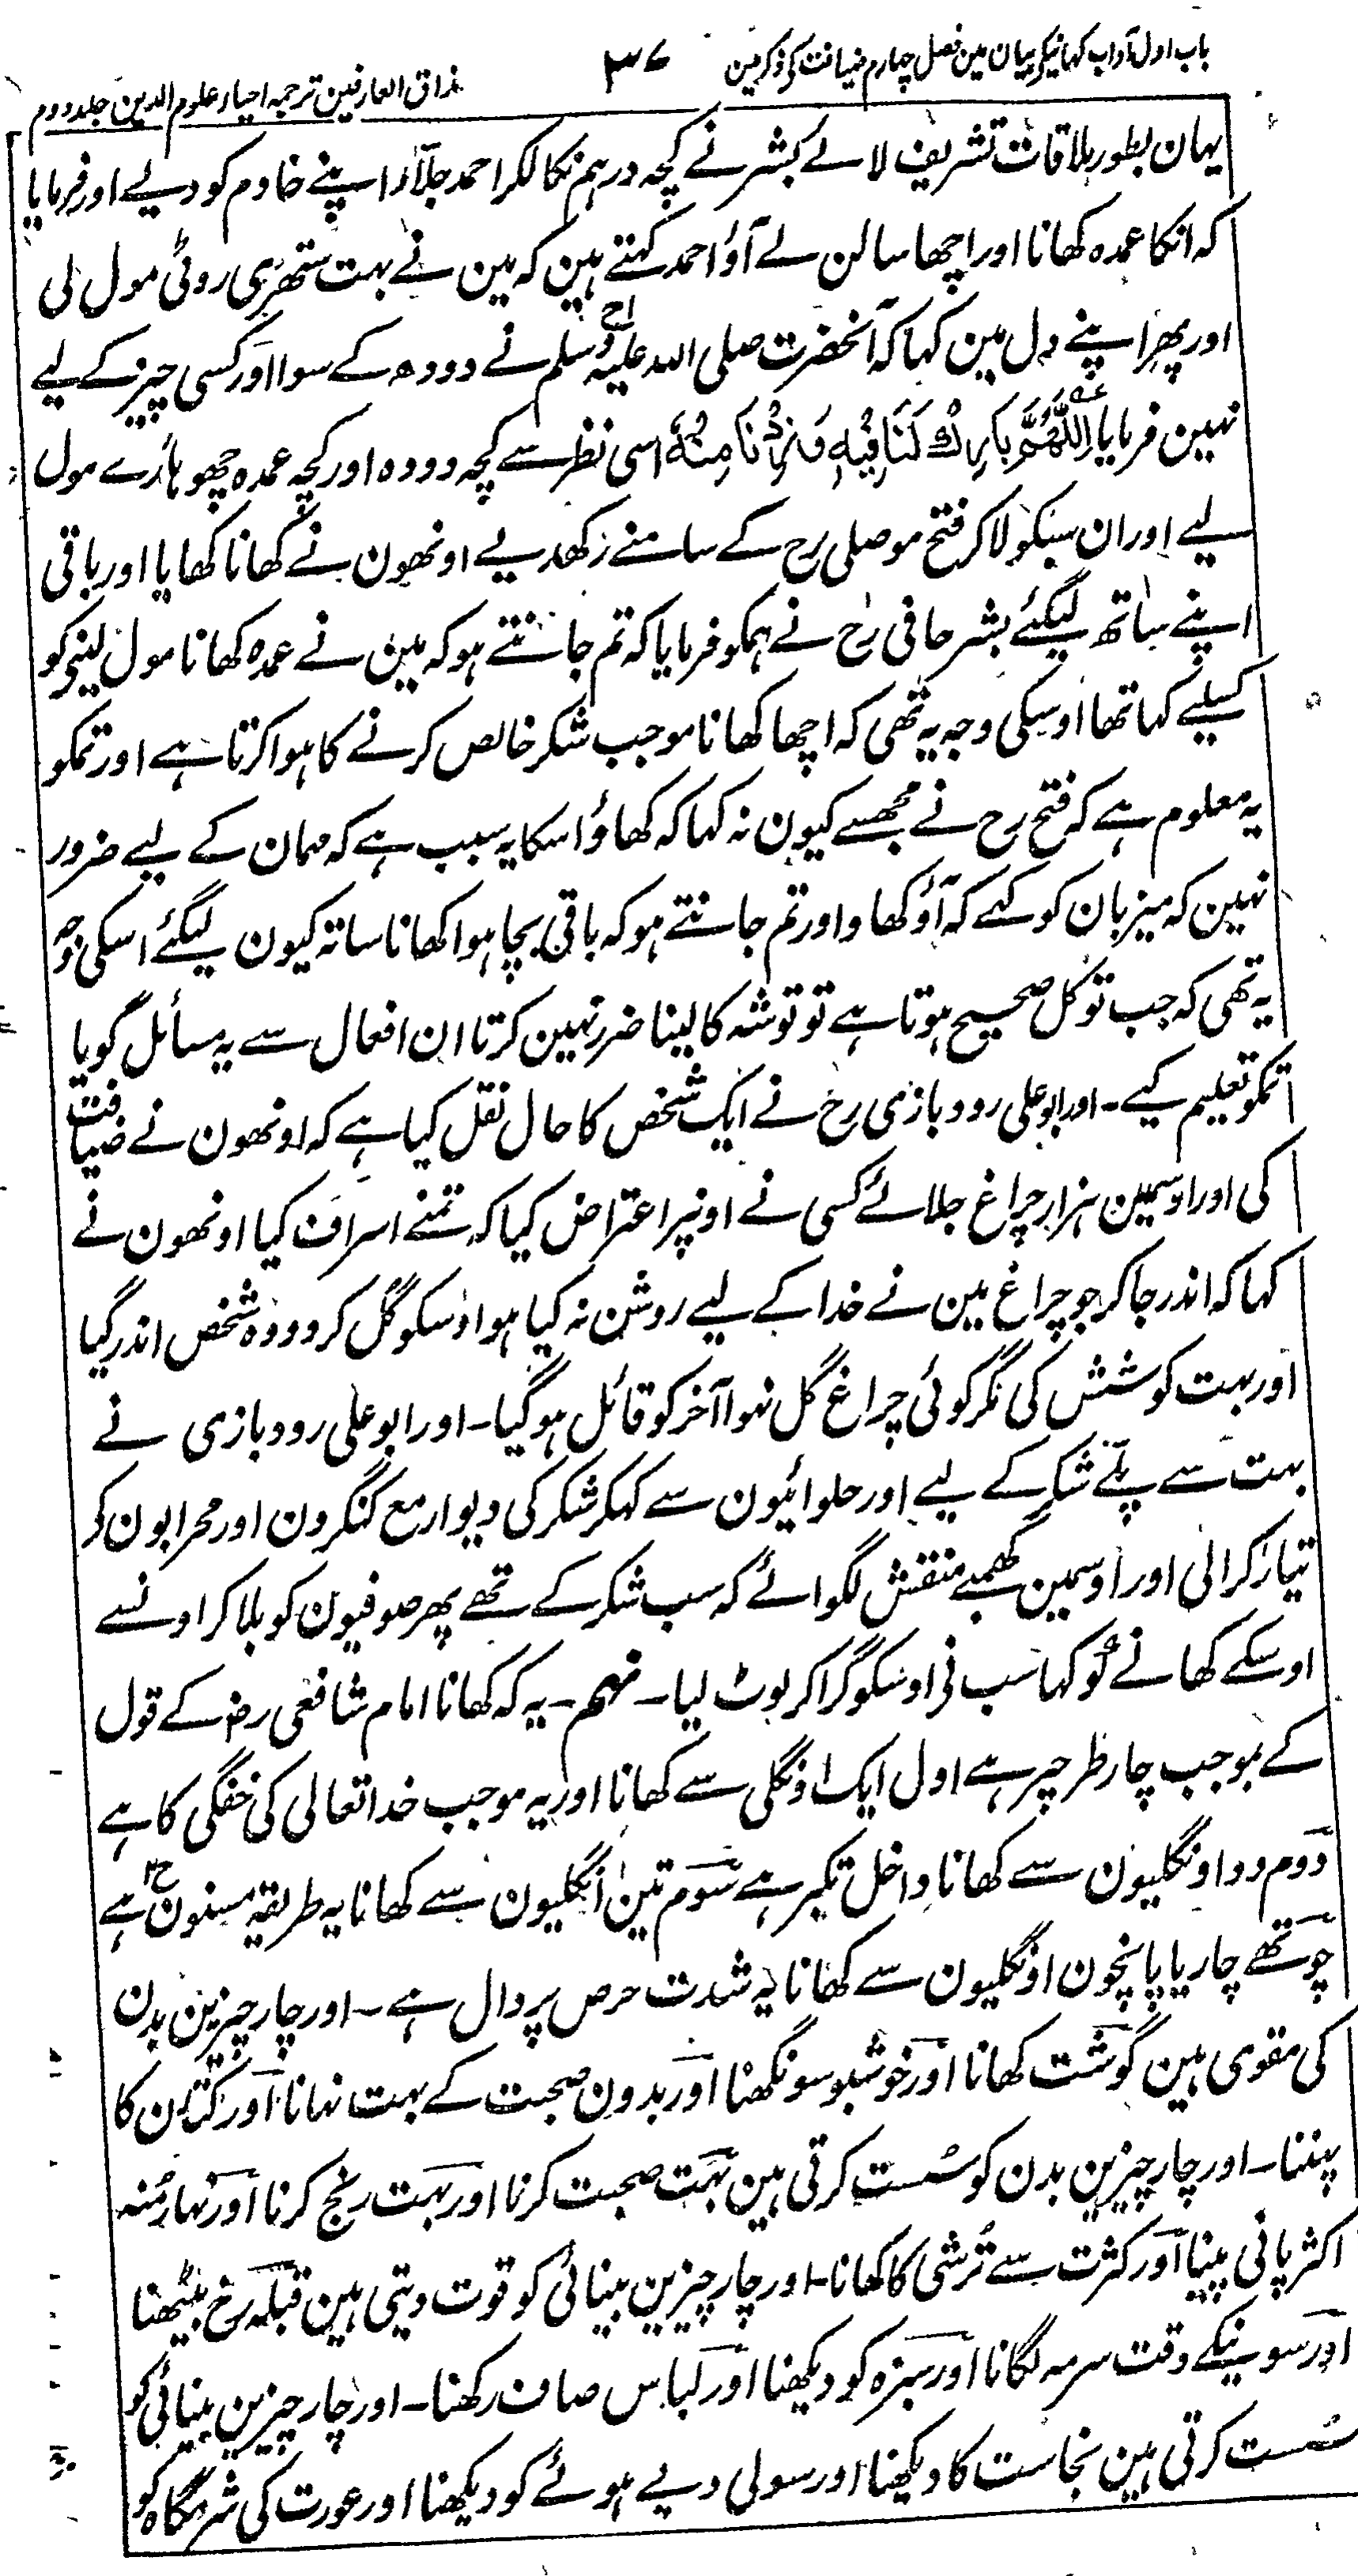 باب اول آداب کہانیکے بیان مین فصل چہارم ضیافت کی ذکر مین
۳۷
مذاق العارفین ترجمہ احیار علوم الدین جلد دوم
یہان بطور ملاقات تشریف لائے بشر نے کچہ درہم نکالکر احمد جلّا اپنے خادم کو دیے اور فرمایا
کہ انکا عمدہ کھانا اور اچھا سالن لے آؤ احمد کہتے ہین کہ مین نے بہت ستھری روٹی مول لی
اور پھر اپنے دل مین کہا کہ آنحضرت صلی اللہ علیہ وسلم نے دودھ کے سوا اور کسی چیز کے لیے
نہین فرمایا اللّٰهُمَّ بَارِكْ لَنَا فِيْهِ وَزِدْنَا مِنْهُ اسی نظر سے کچہ دودہ اور کچہ عمدہ چھوہارے مول
لیے اور ان سبکو لا کر فتح موصلی رح کے سامنے رکھدیے اونھون نے کھانا کھایا اور باقی
اپنے ساتھ لیگئے بشر حافی رح نے ہمکو فرمایا کہ تم جانتے ہو کہ مین نے عمدہ کھانا مول لینیکو
کسلیے کہا تھا اوسکی وجہ یہ تھی کہ اچھا کھانا موجب شکر خالص کرنے کا ہوا کرتا ہے اور تمکو
یہ معلوم ہے کہ فتح رح نے مجھسے کیون نہ کہا کہ کھاؤ اسکا یہ سبب ہے کہ مہمان کے لیے ضرور
نہین کہ میزبان کو کہے کہ آؤ کھاؤ اور تم جانتے ہو کہ باقی بچا ہوا کھانا ساتہ کیون لیگئے اسکی وجہ
یہ تھی کہ جب توکل صحیح ہوتا ہے تو توشہ کا لینا ضرر نہین کرتا ان افعال سے یہ مسائل گویا
تمکو تعلیم کیے۔ اور ابو علی رودباری رح نے ایک شخص کا حال نقل کیا ہے کہ اونھون نے ضیافت
کی اور اوسمین ہزار چراغ جلائے کسی نے اونپر اعتراض کیا کہ تمنے اسراف کیا اونھون نے
کہا کہ اندر جا کر جو چراغ مین نے خدا کے لیے روشن نہ کیا ہو اوسکو گل کردو وہ شخص اندر گیا
اور بہت کوشش کی مگر کوئی چراغ گل نہوا آخر کو قائل ہو گیا۔ اور ابو علی رودبازی نے
بہت سے پلّے شکر کے لیے اور حلوائیون سے کہکر شکر کی دیوار مع کنگرون اور محرابون کر
تیار کرائی اور اوسمین کھمبے منقش لگوائے کہ سب شکر کے تھے پھر صوفیون کو بلا کر اونسے
اوسکے کھانے کو کہا سب نے اوسکو گرا کر لوٹ لیا۔ نہم۔ یہ کہ کھانا امام شافعی رضہ کے قول
کے بموجب چار طرح پر ہے اول ایک اونگلی سے کھانا اور یہ موجب خدا تعالی کی خفگی کا ہے
دوم دو اونگلیون سے کھانا داخل تکبر ہے سوم تین انگلیون سے کھانا یہ طریقہ مسنون ہے
چوتھے چار یا پانچون اونگلیون سے کھانا یہ شدت حرص پر دال ہے۔ اور چار چیزین بدن
کی مقوی ہین گوشت کھانا اور خوشبو سونگھنا اور بدون صحبت کے بہت نہانا اور کتان کا
پہننا۔ اور چار چیزین بدن کو سست کرتی ہین بہت صحبت کرنا اور بہت رنج کرنا اور نہار منہ
اکثر پانی پینا اور کثرت سے ترشی کا کھانا۔ اور چار چیزین بینائی کو قوت دیتی ہین قبلہ رخ بیٹھنا
اور سونیکے وقت سرمہ لگانا اور سبزہ کو دیکھنا اور لباس صاف رکھنا۔ اور چار چیزین بینائی کو
سست کرتی ہین نجاست کا دیکھنا اور سولی دیے ہوئے کو دیکھنا اور عورت کی شرمگاہ کو